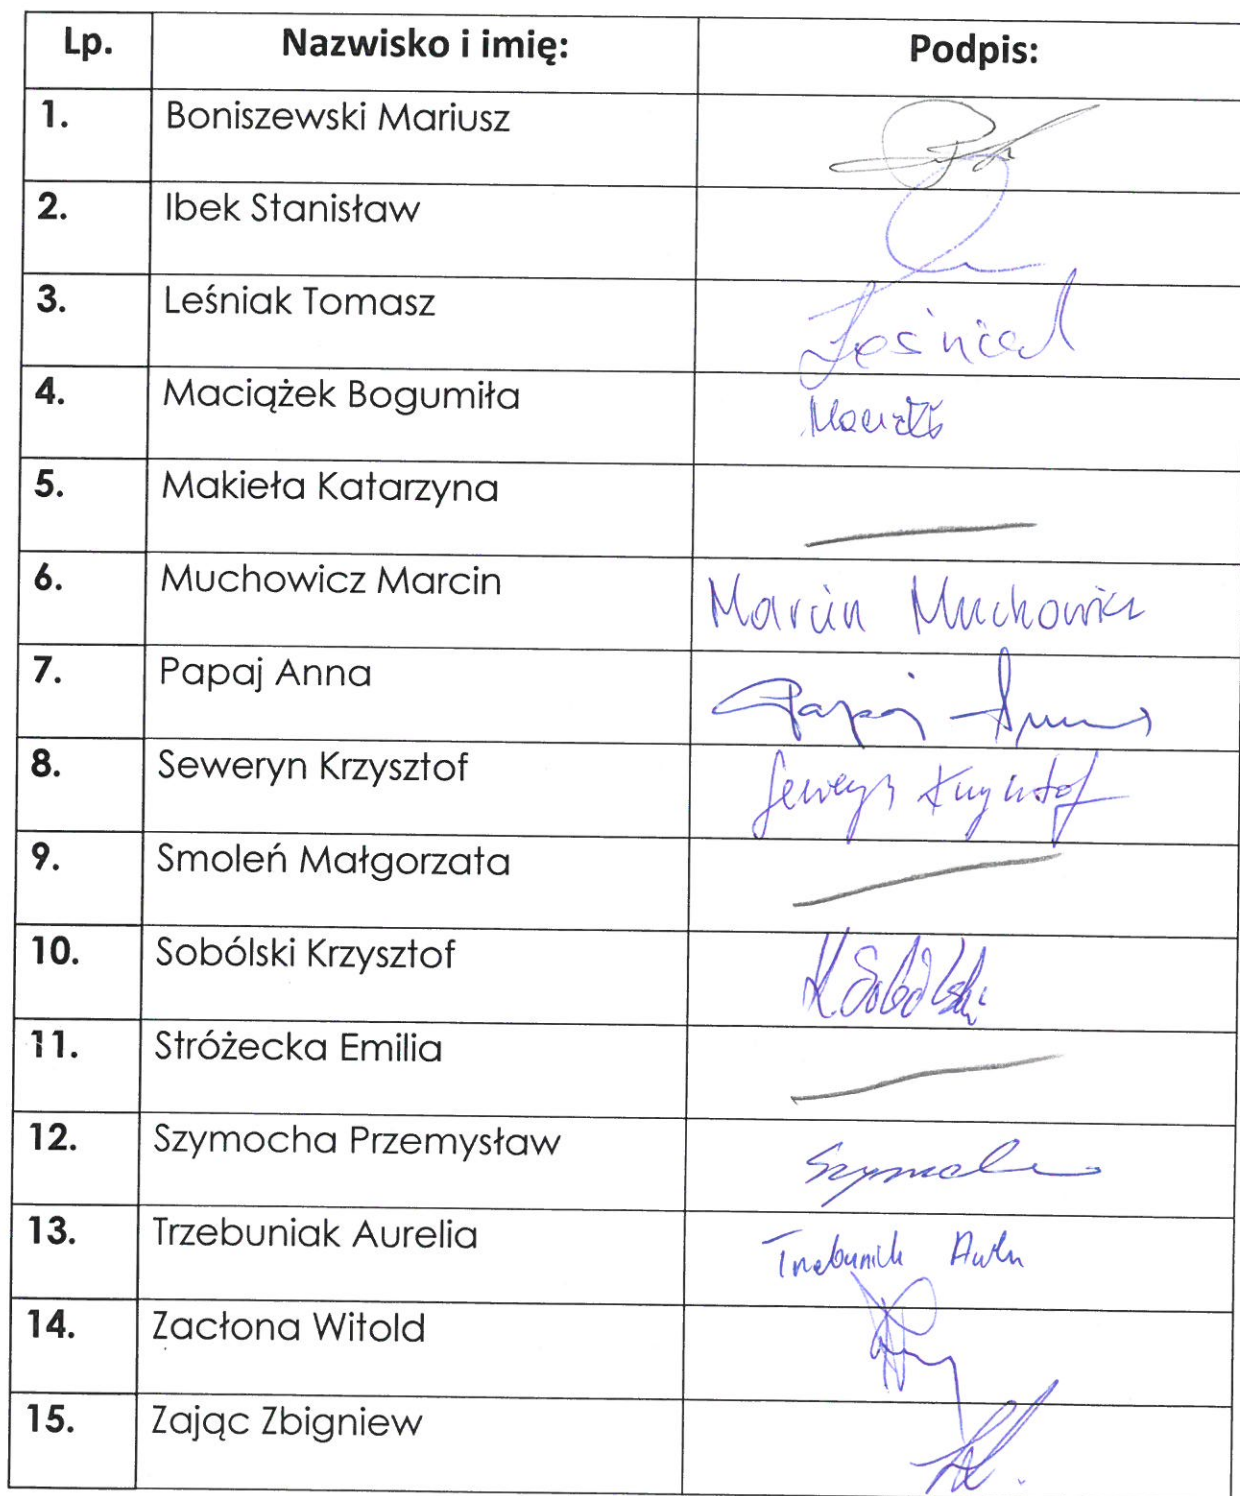 Lp. Nazwisko i imię: Podpis:
1. Boniszewski Mariusz
2. Ibek Stanisław
3. Leśniak Tomasz Leśniak
4. Maciążek Bogumiła
5. Makieła Katarzyna
6. Muchowicz Marcin Marcin Muchowicz
7. Papaj Anna Papaj Anna
8. Seweryn Krzysztof Seweryn Krzysztof
9. Smoleń Małgorzata
10. Sobólski Krzysztof K Sobólski
11. Stróżecka Emilia
12. Szymocha Przemysław
13. Trzebuniak Aurelia
14. Zacłona Witold
15. Zając Zbigniew